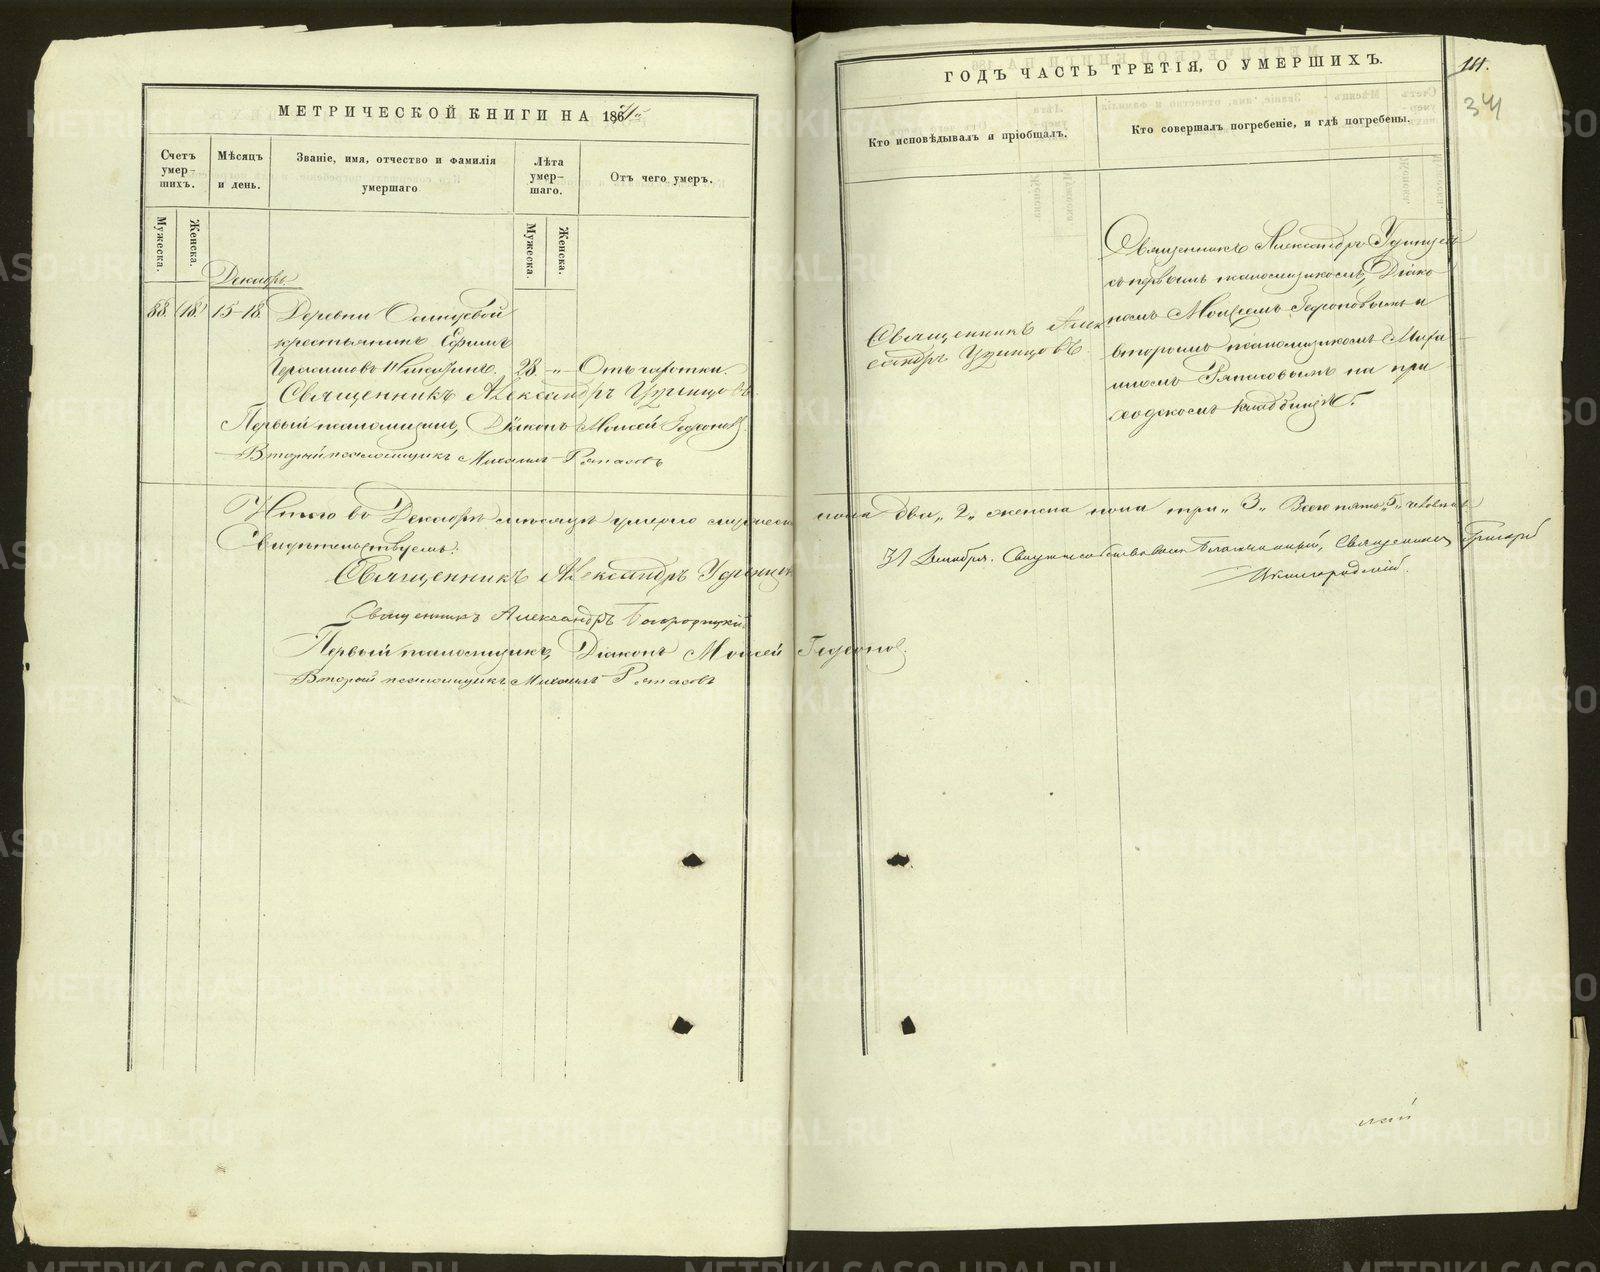 МЕТРИЧЕСКОЙ КНИГИ НА 1871
Счетъ умер-шихъ.
Мѣсяцъ и день.
Званіе, имя, отчество и фамилія умершаго
Лѣта умер-шаго.
Отъ чего умеръ.
Мужеска.
Женска.
Мужеска.
Женска.
Декабрь
88. 15 18.
Деревни
крестьянинъ Ефимъ
Герасимовъ 28 " Отъ чахотки.
Священникъ Александръ Удинцовъ.
Первый псаломщикъ, Діаконъ Моисей Гедеоновъ.
Второй псаломщикъ Михаилъ
Итого въ Декабрѣ мѣсяцѣ умерло мужеска
Свидѣтельствуемъ:
Священникъ Александръ Удинцовъ
Священникъ Александръ Богородицкій
Первый псаломщикъ, Діаконъ Моисей Гедеоновъ.
Второй псаломщикъ Михаилъ
ГОДЪ ЧАСТЬ ТРЕТІЯ, О УМЕРШИХЪ.
341
Кто исповѣдывалъ и пріобщалъ.
Кто совершалъ погребеніе, и гдѣ погребены.
Священникъ Алек
сандръ Удинцовъ
Священникъ Александръ Удинцовъ
съ первымъ псаломщикомъ, Діако
номъ Моисеемъ Гедеоновымъ и
вторымъ псаломщикомъ Миха
иломъ на при
ходскомъ кладбищѣ.
пола два „2„ женска пола три „3„ Всего пять „5„ человѣкъ
31 Декабря. Свидѣтельствовалъ Благочинный, Священникъ Григорій
METRIKI.GASO-URAL.RU